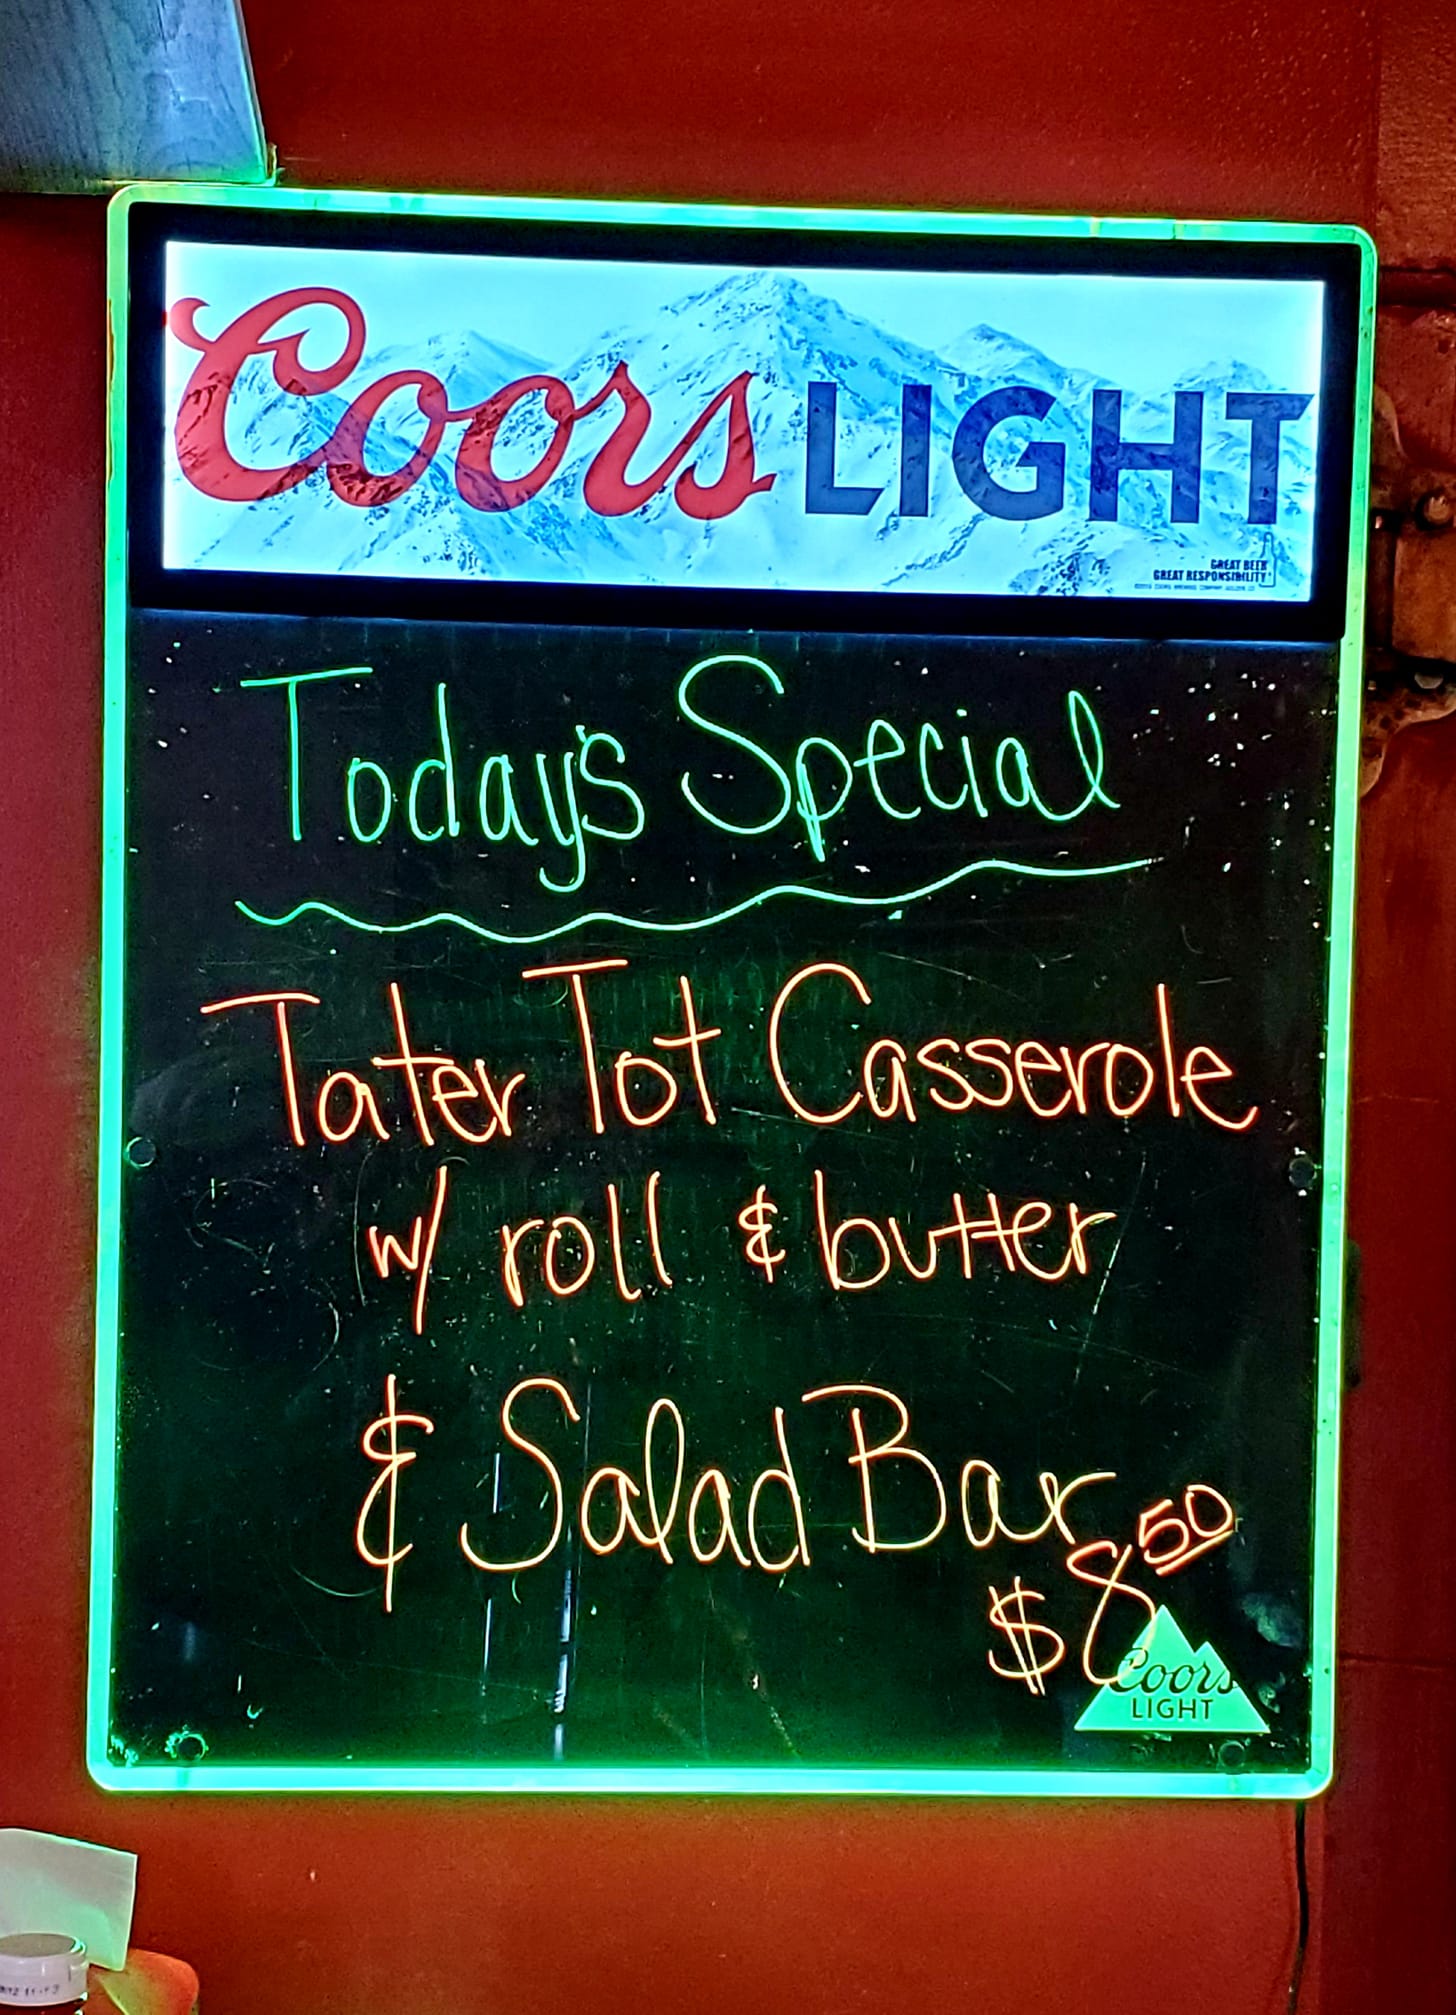 Coors LIGHT
GREAT BEER
GREAT RESPONSIBILITY
Today's Special
Tater Tot Casserole
w/ roll & butter
& Salad Bar
$8 50
Coors
LIGHT